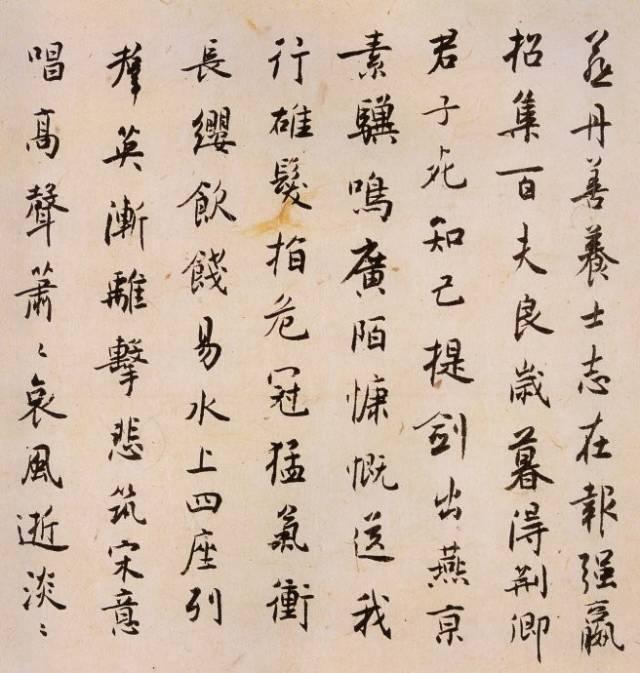 燕丹善養士志在報强嬴
招集百夫良歲暮得荆卿
君子死知己提劍出燕京
素驥鳴廣陌慷慨送我
行雄髮指危冠猛氣衝
長纓飲餞易水上四座列
羣英漸離擊悲筑宋意
唱高聲蕭〻哀風逝淡〻